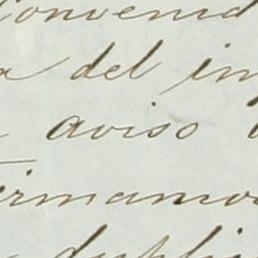 convenid
a del in
aviso
irmamo
dupli